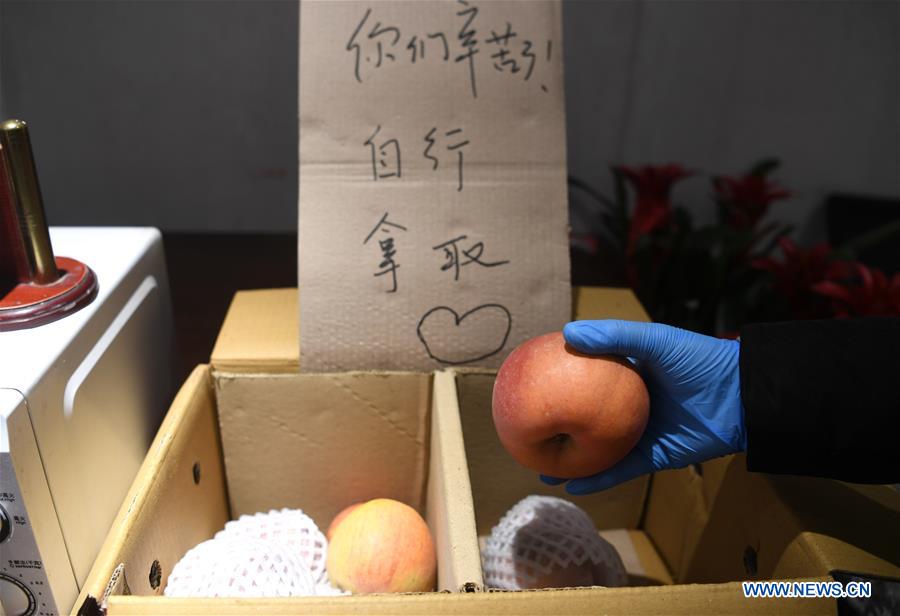 你们辛苦了!
自行
拿取
WWW.NEWS.CN